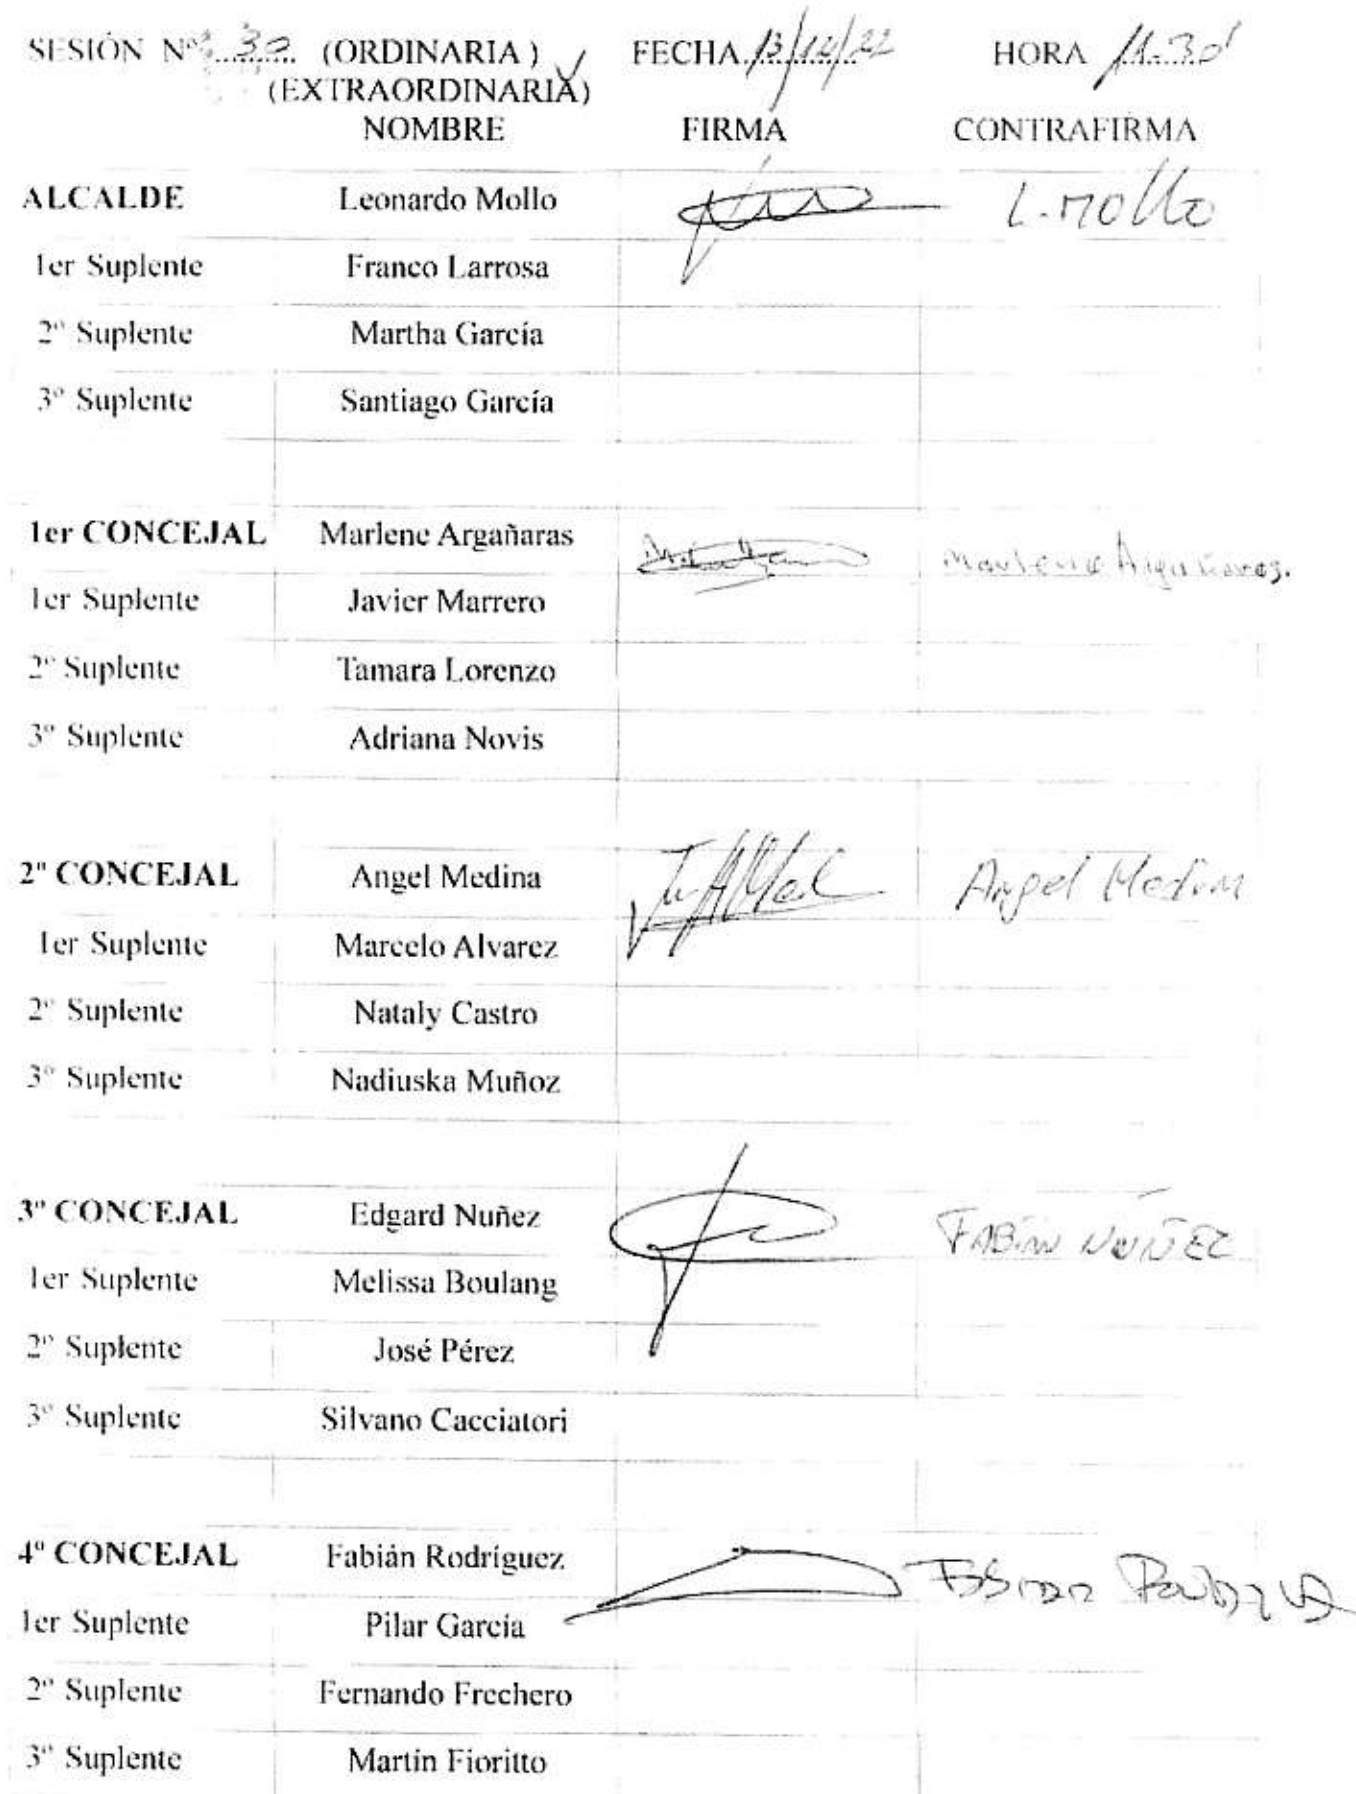 SESIÓN Nº 30 (ORDINARIA) ✓ FECHA 13/12/22 HORA 11.30'
(EXTRAORDINARIA)
NOMBRE FIRMA CONTRAFIRMA
ALCALDE Leonardo Mollo L. Mollo
1er Suplente Franco Larrosa
2º Suplente Martha García
3º Suplente Santiago García
1er CONCEJAL Marlene Argañaras Marlene Argañaras.
1er Suplente Javier Marrero
2º Suplente Tamara Lorenzo
3º Suplente Adriana Novis
2º CONCEJAL Angel Medina Angel Medina
1er Suplente Marcelo Alvarez
2º Suplente Nataly Castro
3º Suplente Nadiuska Muñoz
3º CONCEJAL Edgard Nuñez FABIÁN NUÑEZ
1er Suplente Melissa Boulang
2º Suplente José Pérez
3º Suplente Silvano Cacciatori
4º CONCEJAL Fabián Rodríguez Fabian
1er Suplente Pilar García
2º Suplente Fernando Frechero
3º Suplente Martín Fioritto